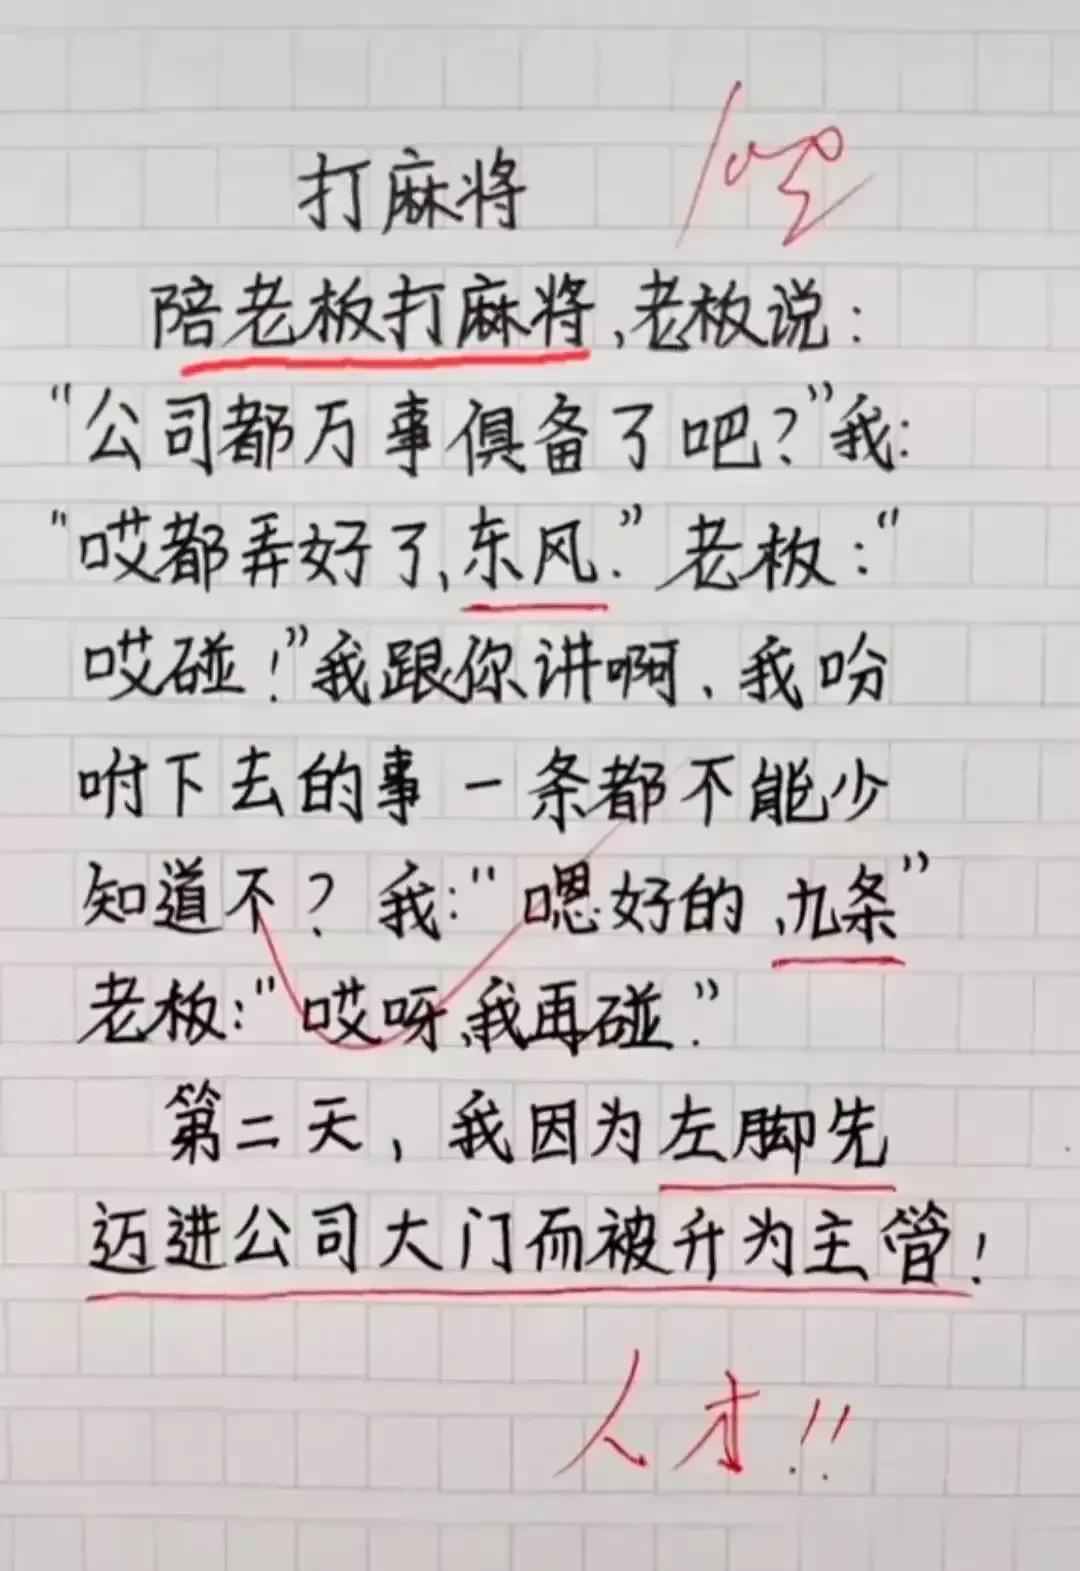 打麻将
100
陪老板打麻将,老板说:
“公司都万事俱备了吧?”我:
“哎都弄好了,东风.”老板:“
哎碰!”我跟你讲啊、我吩
咐下去的事一条都不能少
知道不?我:“嗯好的,九条”
老板:“哎呀,我再碰.”
第二天,我因为左脚先
迈进公司大门而被升为主管!
人才!!